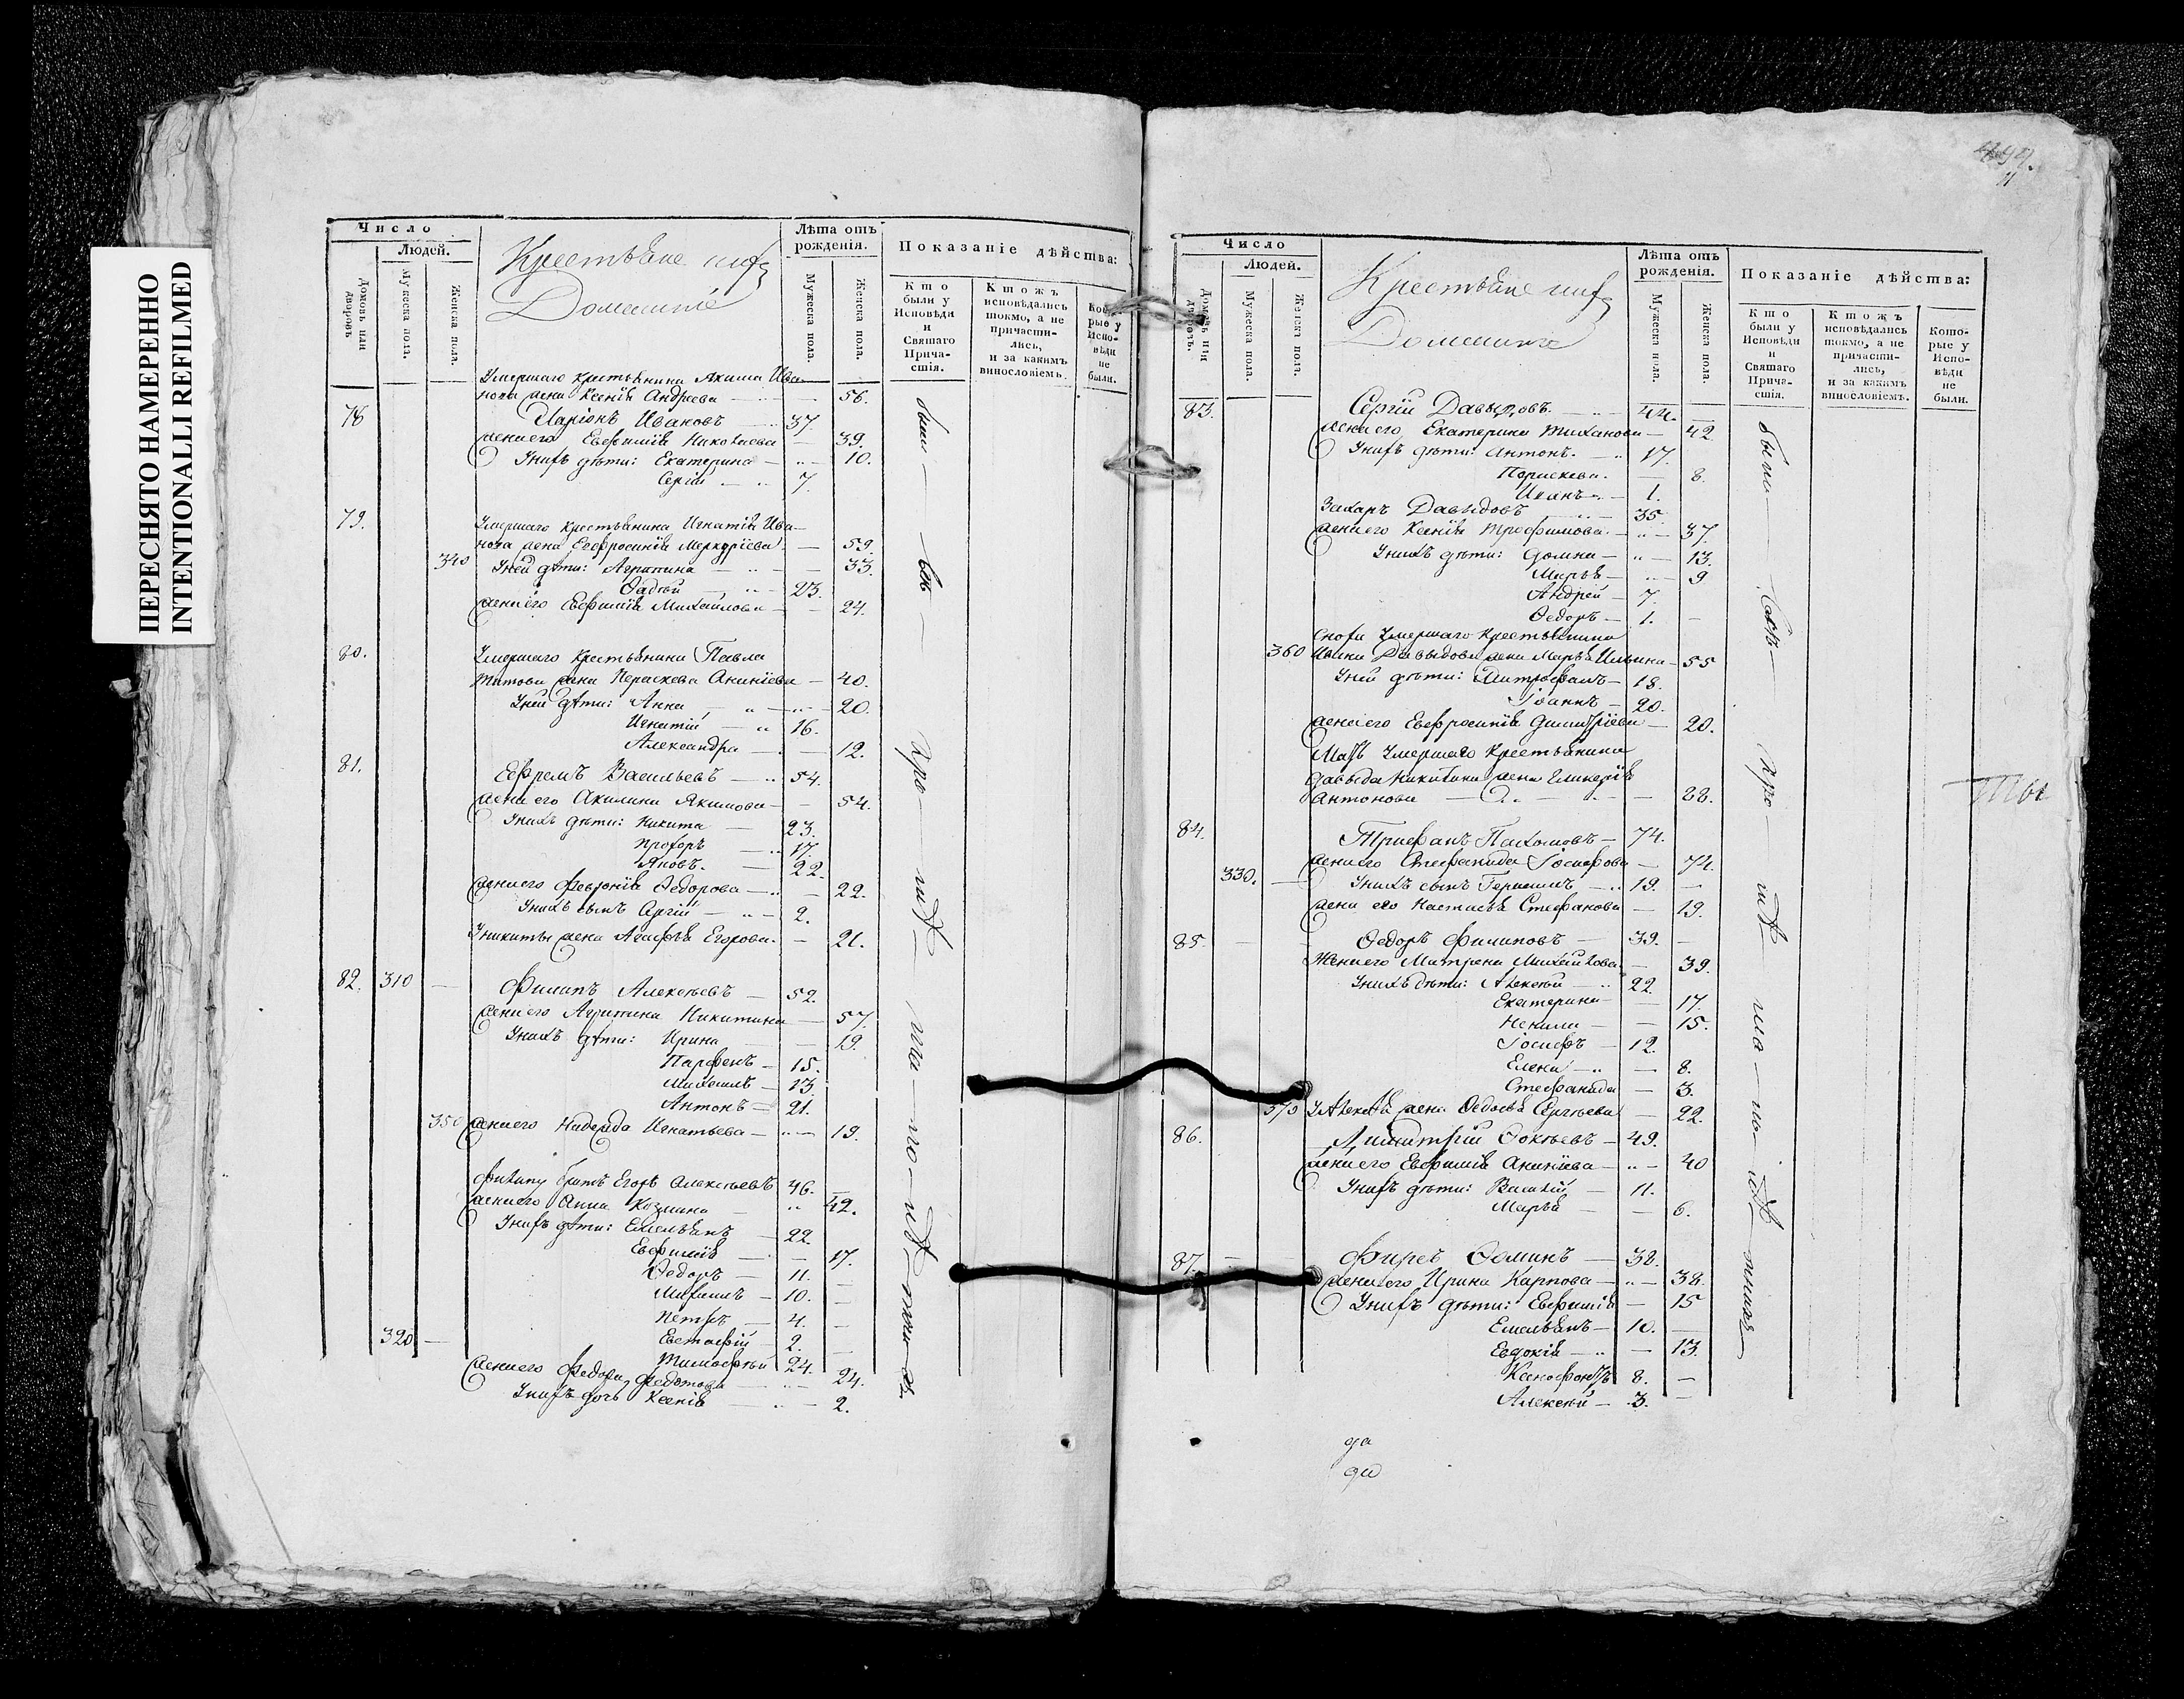 ПЕРЕСНЯТО НАМЕРЕННО
INTENTIONALLI REFILMED
Число
Людей.
Домовъ или дворовъ
Мужеска пола.
Женска пола.
Крестьяне ихъ
Домашніе
Лѣта отъ рожденія.
Мужеска пола.
Женска пола.
Показаніе дѣйства:
Кто были у Исповѣди и Святаго Причастія.
Ктожъ исповѣдались токмо, а не причастились, и за какимъ винословіемъ.
Которые у Исповѣди не были.
Умершаго крестьянина Якима Ива-
нова жена Ксенія Андреева — 56.
78 Иларіонъ Ивановъ 37.
жена его Евфимія Николаева — 39.
У нихъ дѣти: Екатерина — 10.
Сергій — 7.
79. Умершаго крестьянина Игнатія Ива-
нова жена Евфросинія Меркуріева — 59.
340 У ней дѣти: Агрипина — 33.
Фадѣй 23.
жена его Евфимія Михайлова — 24.
80. Умершаго крестьянина Павла
Титова жена Параскева Ананіева — 40.
У ней дѣти: Анна — 20.
Игнатій — 16.
Александра — 12.
81. Ефремъ Васильевъ — 54.
жена его Акилина Якимова — 54.
У нихъ дѣти: Никита — 23.
Прохоръ — 17.
Яковъ. — 22.
жена его Февронія Федорова — 22.
У нихъ сынъ Сергій — 2.
У Никиты жена Агафья Егорова. — 21.
82. 310 — Филипъ Алексѣевъ — 52.
жена его Агрипина Никитина — 57.
У нихъ дѣти: Ирина — 19.
Парфенъ — 15.
Михаилъ — 13.
Антонъ — 21.
350 жена его Надежда Игнатьева — 19.
Филипу братъ Егоръ Алексѣевъ 46. —
жена его Анна Козмина — 42.
У нихъ дѣти: Емельянъ 22.
Евфимія — 17.
Ѳедоръ — 11. —
Михаилъ — 10. —
Петръ — 4. —
320 — Евстафій — 2. —
Тимофей 24.
жена его Федора Федотова — 24.
У нихъ дочь Ксенія — 2.
были
Число
Людей.
Домовъ или дворовъ.
Мужеска пола.
Женска пола.
Крестьяне ихъ
Домашніе
Лѣта отъ рожденія.
Мужеска пола.
Женска пола.
Показаніе дѣйства:
Кто были у Исповѣди и Святаго Причастія.
Ктожъ исповѣдались токмо, а не причастились, и за какимъ винословіемъ.
Которые у Исповѣди не были.
83. Сергій Давыдовъ. — 44. —
жена его Екатерина — 42.
У нихъ дѣти: Антонъ. — 17.
Параскева. — 8.
Иванъ — 1.
Захаръ Давыдовъ — 35.
жена его Ксенія Трофимова. — 37.
У нихъ дѣти: Домна — 13.
Марья — 9
Андрей — 7.
Ѳедоръ — 1. —
Сноха Умершаго крестьянина
360 Ивана Давыдова жена Марья Ильина — 55
У ней дѣти: Митрофанъ — 18.
Іоаннъ — 20.
жена его Евфросинія Димитріева — 20.
Мать Умершаго Крестьянина
Давыда Никитина жена
Антонова — 88.
84. Трифанъ Пахомовъ — 74.
жена его Стефанида Іосифова — 74.
330. — У нихъ сынъ Герасимъ — 19. —
жена его Настасья Стефанова — 19.
85. — Ѳедоръ Филиповъ — 39. —
Жена его Матрена Михайлова. — 39.
У нихъ дѣти: Алексѣй — 22.
Екатерина — 17.
— 15.
Іосифъ — 12.
Елена — 8.
Стефанида — 3.
370 У Алексѣя жена Федосья Сергѣева — 22.
86. Димитрій — 49.
жена его Евфимія Ананіева — 40
У нихъ дѣти: Василій — 11.
Марья — 6.
87. — Фирсъ Ѳоминъ — 38.
жена его Ирина Карпова — 38.
У нихъ дѣти: Евфимія — 15
Емельянъ — 10. —
Евдокія — 13.
Ксенофонтъ 8. —
Алексѣй — 3. —
были
да